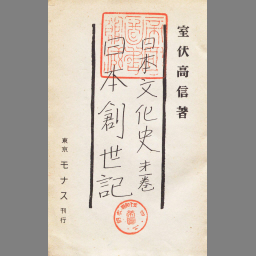 室伏高信著
日本文化史 才一巻
日本創世記
東京 モナス 刊行